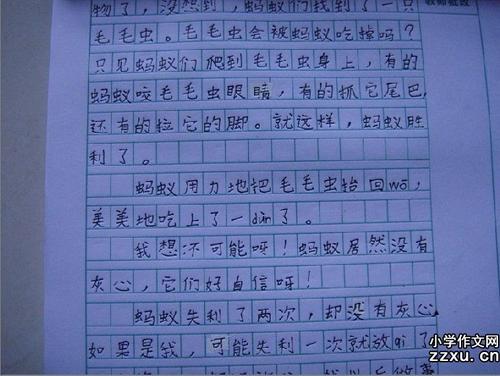 物了，没想到，蚂蚁们找到了一只
毛毛虫。毛毛虫会被蚂蚁吃掉吗？
只见蚂蚁们爬到毛毛虫身上，有的
蚂蚁咬毛毛虫眼睛，有的抓它尾巴，
还有的拉它的脚。就这样，蚂蚁胜
利了。
蚂蚁用力地把毛毛虫抬回wō，
美美地吃上了一dùn了。
我想不可能呀！蚂蚁居然没有
灰心，它们好自信呀！
蚂蚁失利了两次，却没有灰心，
如果是我，可能失利一次就放qì了
小学作文网
zzxu.cn